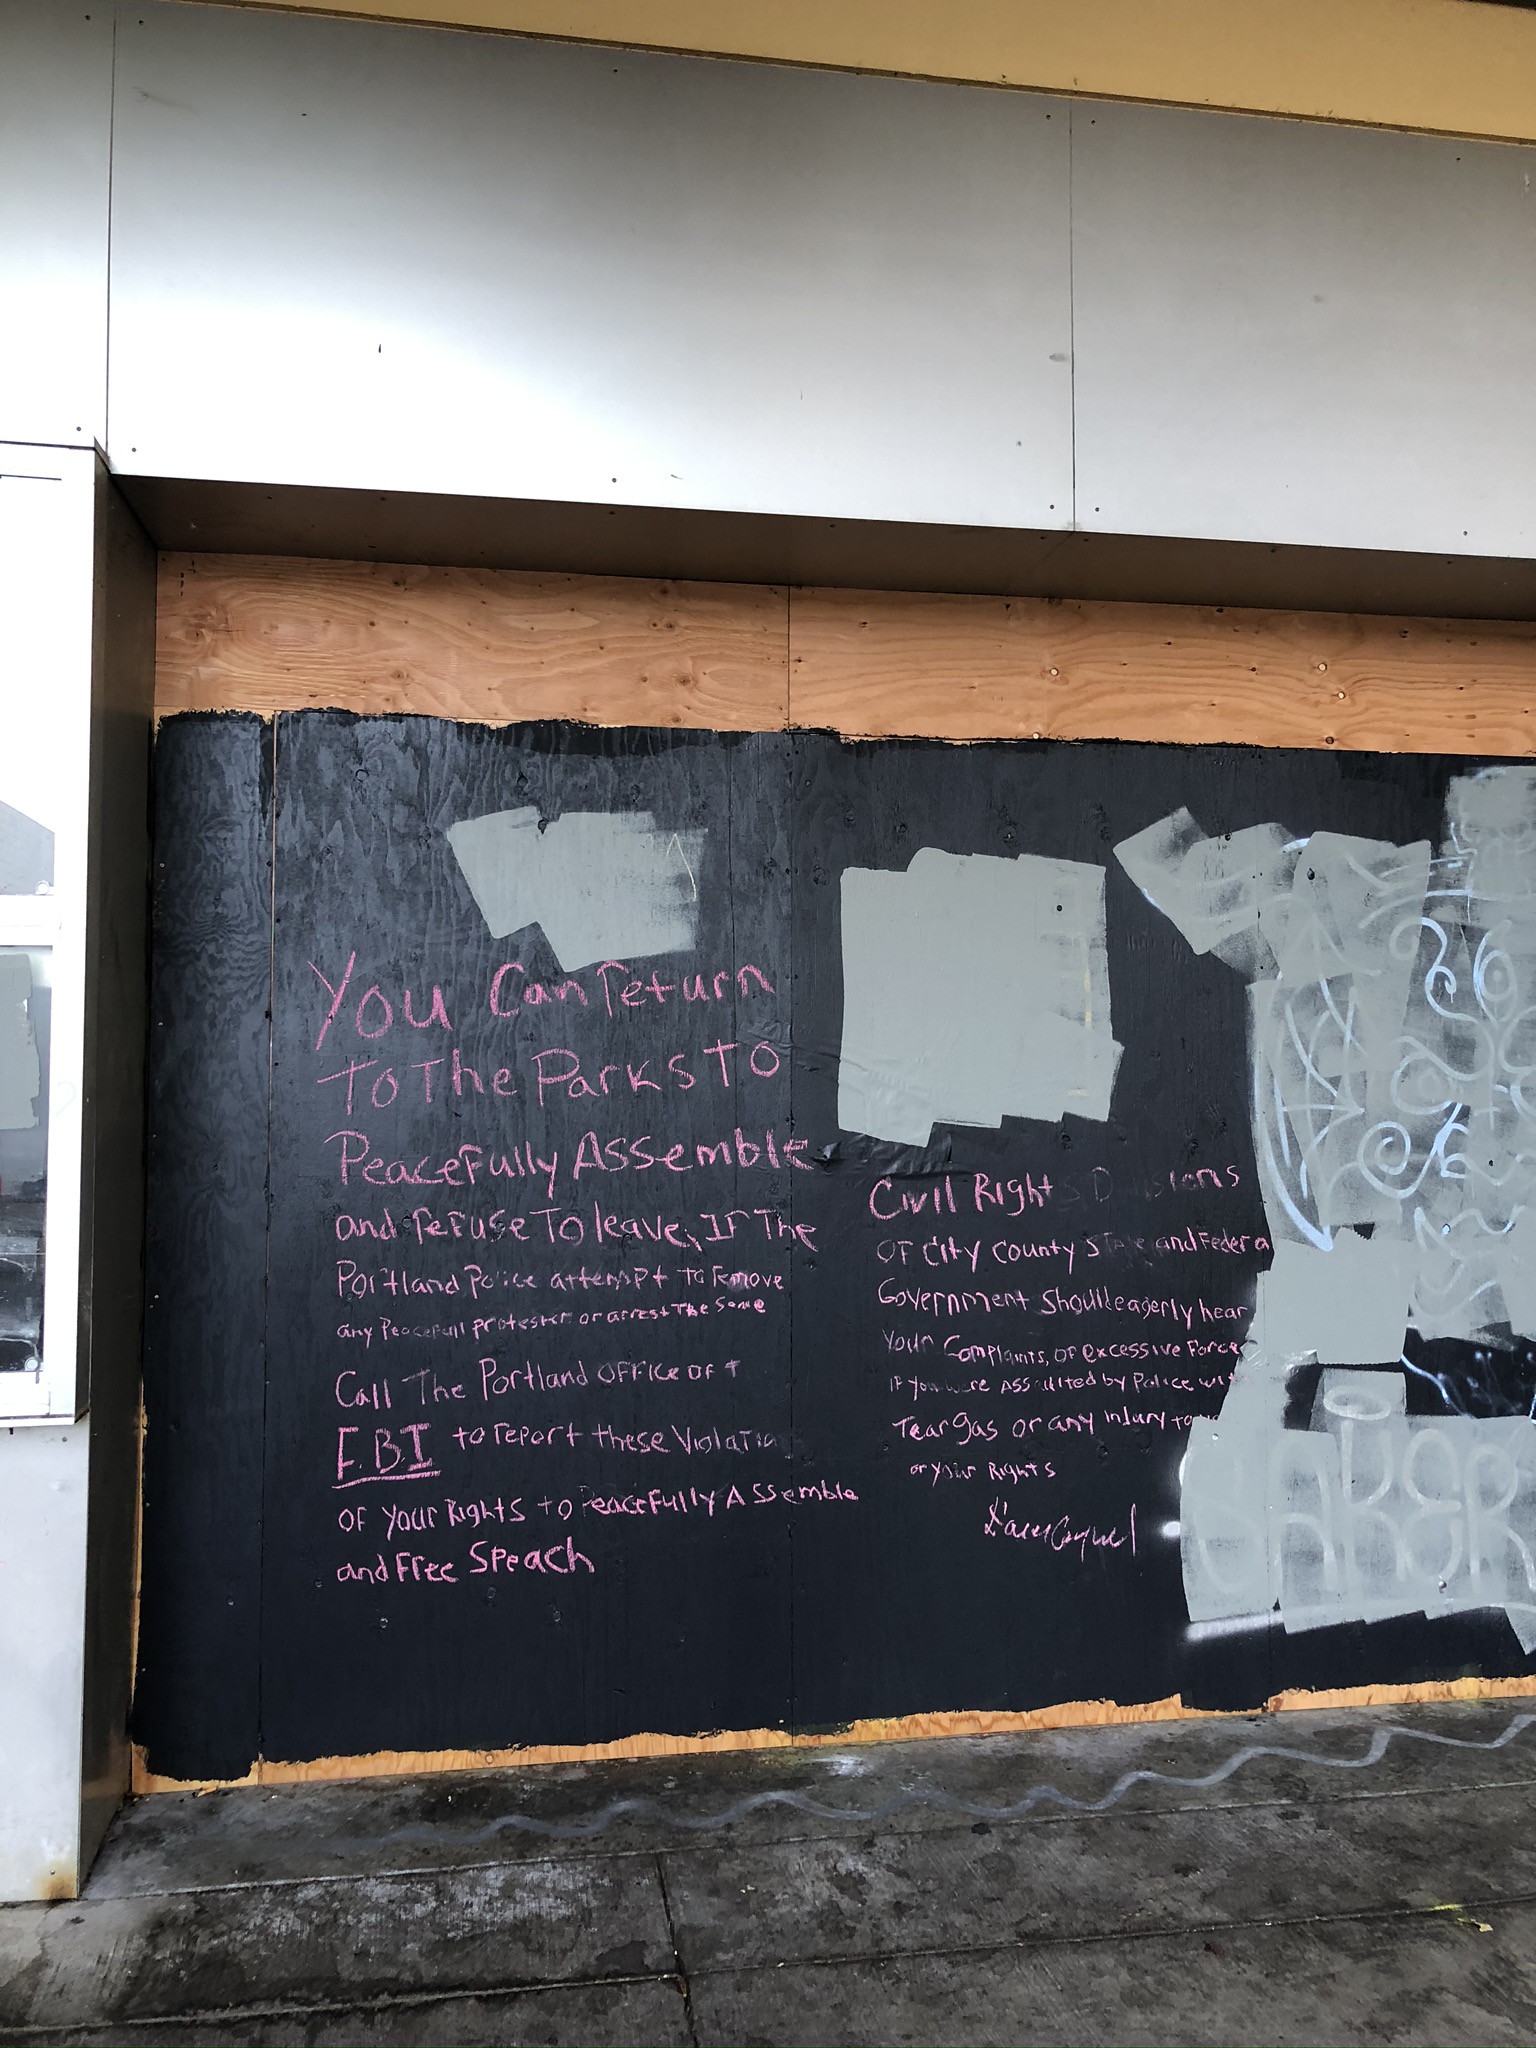 You Can return
To The Parks To
Peacefully Assemble
and refuse To leave, If The
Portland Police attempt to remove
any Peacefull protester or arrest The Same
Call The Portland OFFice of +
F.B.I to report these Violatio
of your Rights to Peacefully Assemble
and Free Speach
Civil Rights Divisions
OF City County State and Federa
Government Should eagerly hear
your Complaints, of excessive Force
If you were Assaulted by Police with
Tear gas or any injury to
or your Rights